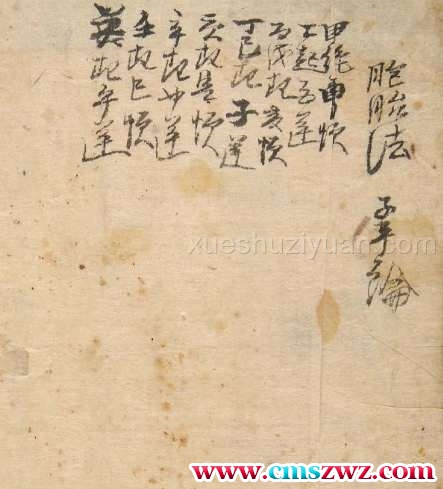 胞胎法 子平論
甲絶申順
乙起酉逆
丙戊起亥順
丁己起子逆
庚起寅順
辛起卯逆
壬起巳順
癸起午逆
xueshuziyuan.com
www.cmszwz.com